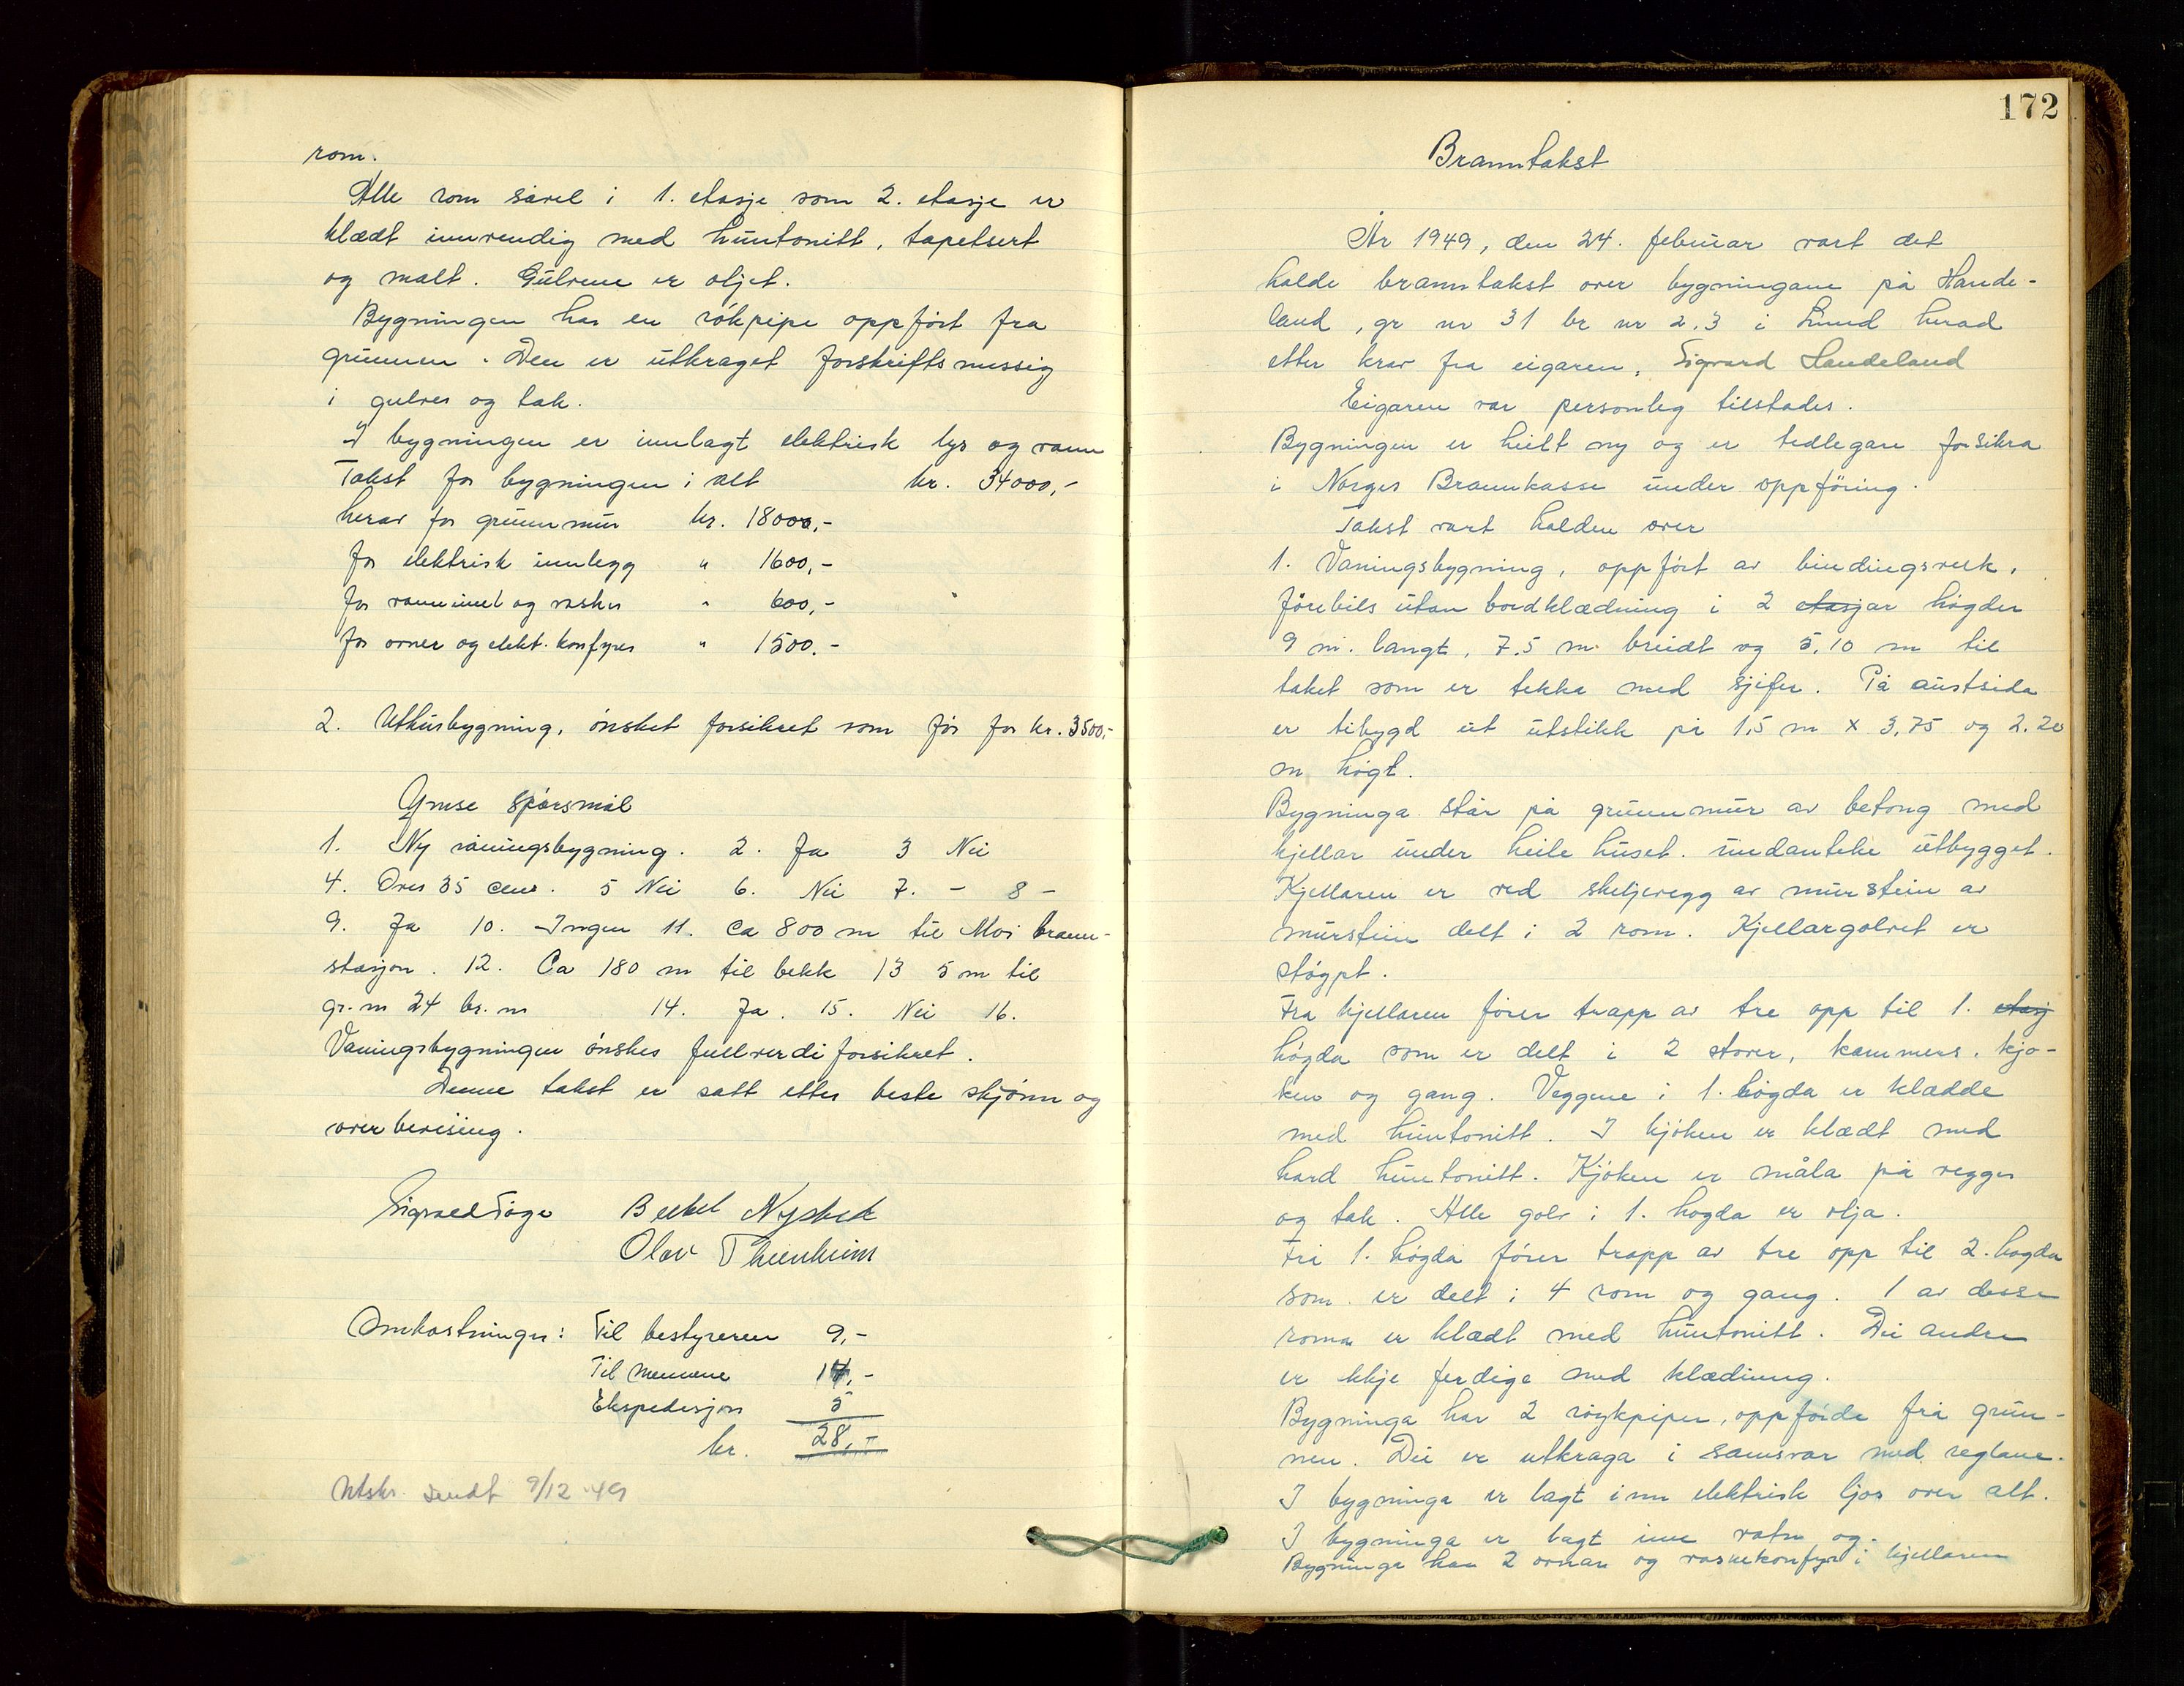 rom.
Alle rom såvel i 1. etasje som 2. etasje er
klædt innvendig med huntonitt, tapetsert
og malt. Gulvene er oljet.
Bygningen har en rökpipe oppfört fra
grunnen. Den er utkraget forskriftsmessig
i gulver og tak.
I bygningen er innlagt elektrisk lys og vann
Takst for bygningen i alt kr. 34000,-
herav for grunnmur kr. 18000,-
for elektrisk innlegg " 1600,-
for vanninnl og vasker " 600,-
for ovner og elekt. komfyrer " 1500.-
2. Uthusbygning, önsket forsikret som för for kr. 3500,-
Ymse spörsmål
1. Ny våningsbygning. 2. Ja 3 Nei
4. Over 35 cm. 5 Nei 6. Nei 7. - 8 -
9. Ja 10. Ingen 11. Ca 800 m til Moi brann-
stasjon. 12. Ca 180 m til bekk 13 5 m til
gr. nr 24 br. nr 14. Ja. 15. Nei 16.
Våningsbygningen önskes fullverdiforsikret.
Denne takst er satt etter beste skjönn og
overbevising.
Sigvald
Olav
Omkostninger: Til bestyreren 9,-
Til mennene 14,-
Ekspedisjon 5
kr. 28,-
Utskr. sendt 9/12-49
172
Branntakst
År 1949, den 24. februar vart det
halde branntakst over bygningane på Hande-
land, gr nr 31 br nr 2,3 i Lund herad
etter krav fra eigaren, Sigvard Handeland
Eigaren var personleg tilstades.
Bygningen er heilt ny og er tedlegare forsikra
i Norges Brannkasse under oppföring.
Takst vart halden over
1. Våningsbygning, oppfört av bindingsverk,
förebils utan bordklædning i 2 etasjar högder
9 m. langt, 7.5 m breidt og 5,10 m til
taket som er tekka med sjifer. På austsida
er tibygd eit utstikk på 1,5 m x 3,75 og 2.20
m högt.
Bygninga står på grunnmur av betong med
kjellar under heile huset. undanteke utbygget.
Kjellaren er ved skeljevegg av murstein av
murstein delt i 2 rom. Kjellargolvet er
stöypt.
Fra kjellaren förer trapp av tre opp til 1. etasj
högda som er delt i 2 stover, kammers, kjö-
ken og gang. Veggene i 1. högda er klædde
med huntonitt. I kjöken er klædt med
hard huntonitt. Kjöken er måla på vegger
og tak. Alle golv i 1. högda er olja.
Frå 1. högda förer trapp av tre opp til 2. högda
som er delt i 4 rom og gang. 1 av desse
roma er klædt med huntonitt. Dei andre
er ikkje ferdige med klædning.
Bygninga har 2 röykpiper, oppförde frå grun-
nen. Dei er utkraga i samsvar med reglane.
I bygninga er lagt inn elektrisk ljos over alt.
I bygninga er lagt inn vatn og.
Bygninga har 2 ovnar og vaskekomfyr i kjellaren